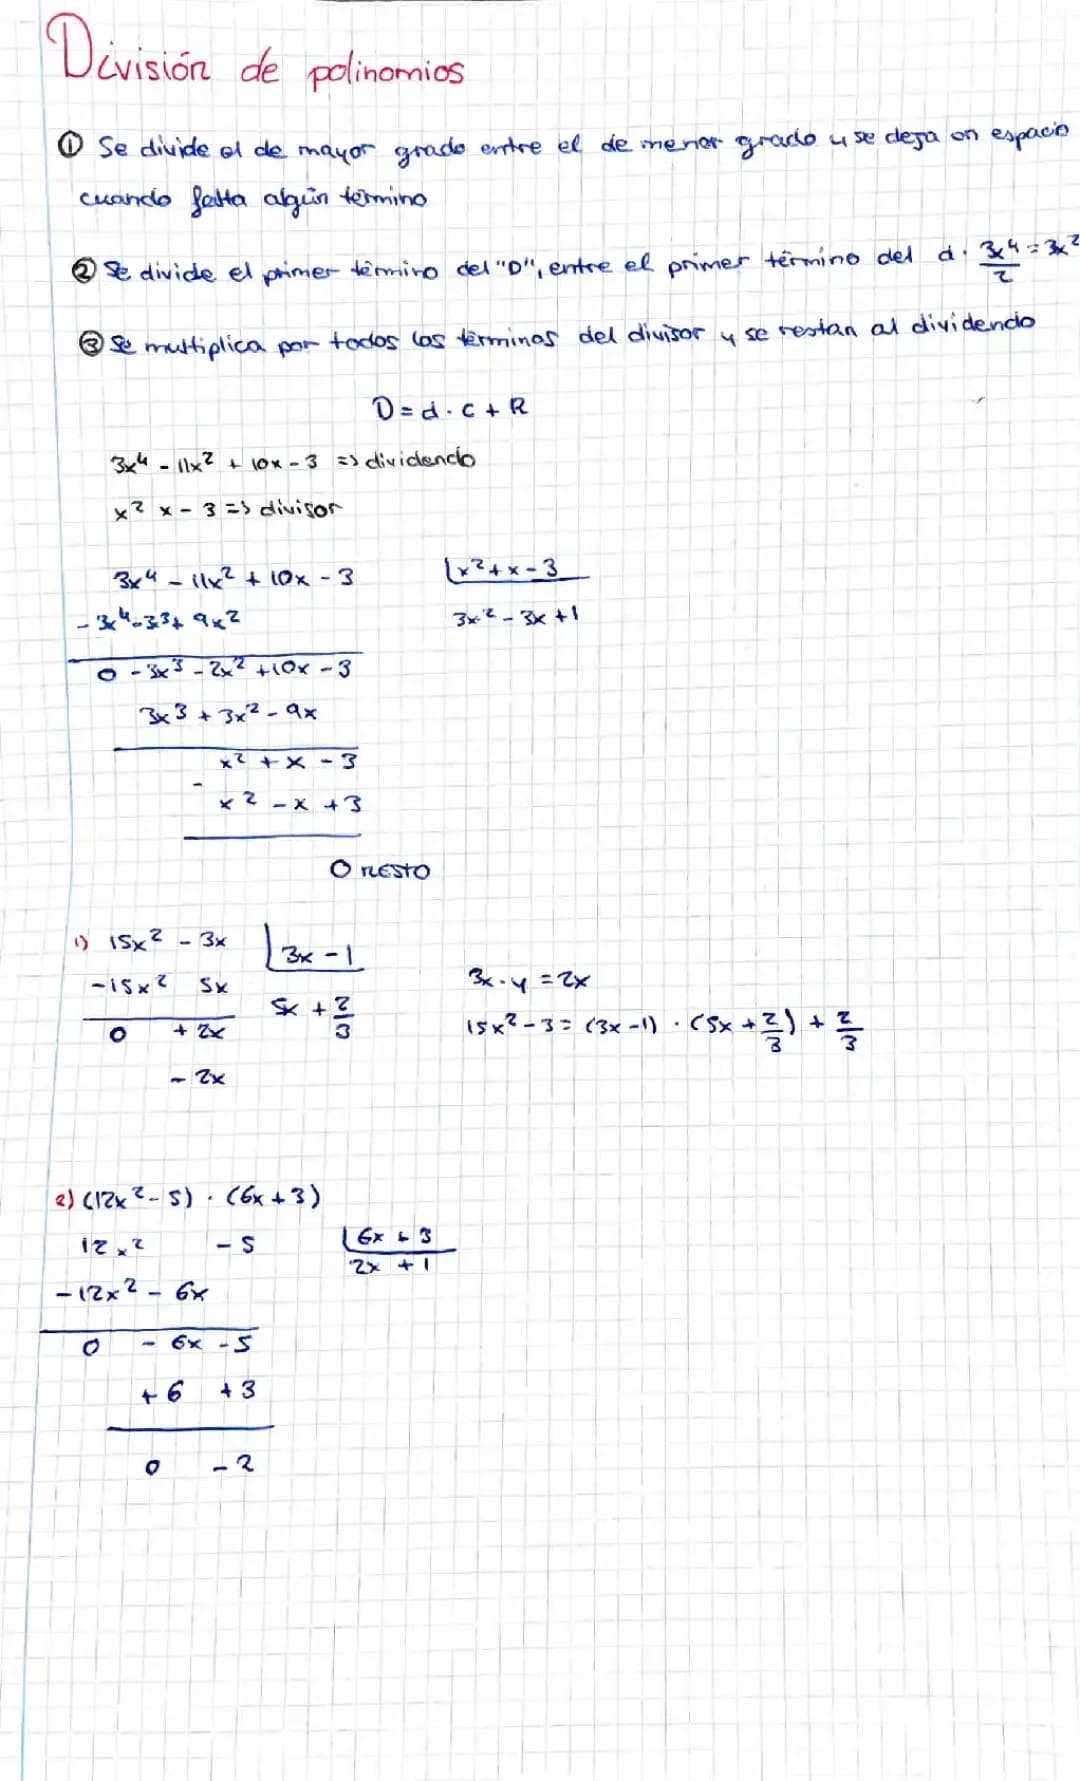 División de polinomios
① Se divide el de mayor grado entre el de menor grado y se deja un espacio
cuando falta algún término
② Se divide el primer término del "D", entre el primer término del d. 3x⁴/2 = 3x²
③ Se multiplica por todos los términos del divisor y se restan al dividendo
D = d · c + R
3x⁴ - 11x² + 10x - 3 => dividendo
x² x - 3 => divisor
3x⁴ - 11x² + 10x - 3 |x² + x - 3
- 3x⁴ - 3x³ + 9x² 3x² - 3x + 1
0 - 3x³ - 2x² + 10x - 3
3x³ + 3x² - 9x
x² + x - 3
-
x² - x + 3
0 RESTO
1) 15x² - 3x |3x - 1
-15x² 5x 5x + 2/3 3x · y = 2x
0 + 2x 15x² - 3 = (3x - 1) · (5x + 2/3) + 2/3
- 2x
2) (12x² - 5) · (6x + 3)
12x² - 5 |6x + 3
-12x² - 6x 2x + 1
0 - 6x - 5
+ 6 + 3
0 - 2